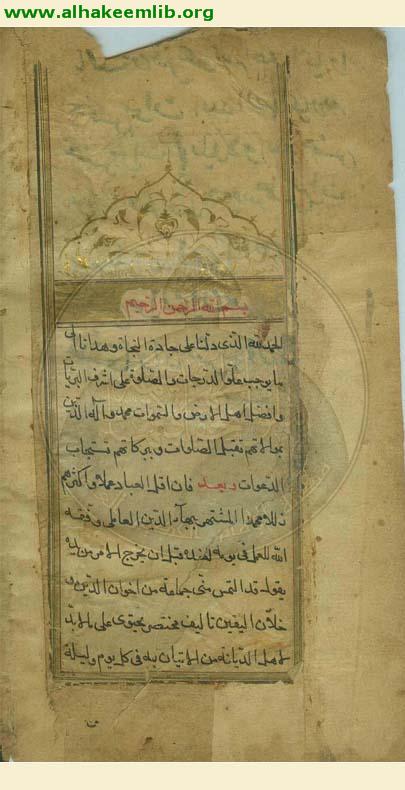 www.alhakeemlib.org
بسم الله الرحمن الرحيم
الحمد لله الذى دلنا على جادة النجاة وهدانا الى
ما يوجب علو الدرجات والصلوة على اشرف البريات
وافضل اهل الارض والسموات محمد وآله الذين
بموالاتهم تقبل الصلوات وببركاتهم تستجاب
الدعوات وبعد فان اقل العباد عملا واكثرهم
زللا محمد المشتهر ببهاء الدين العاملى وفقه
الله للعمل فى يومه لغده قبل ان يخرج الامر من يده
يقول قد التمس منى جماعة من اخوان الدين و
خلان اليقين تاليف مختصر يحتوى على ما لا بد
لاهل الديانة من الاتيان به فى كل يوم وليلة